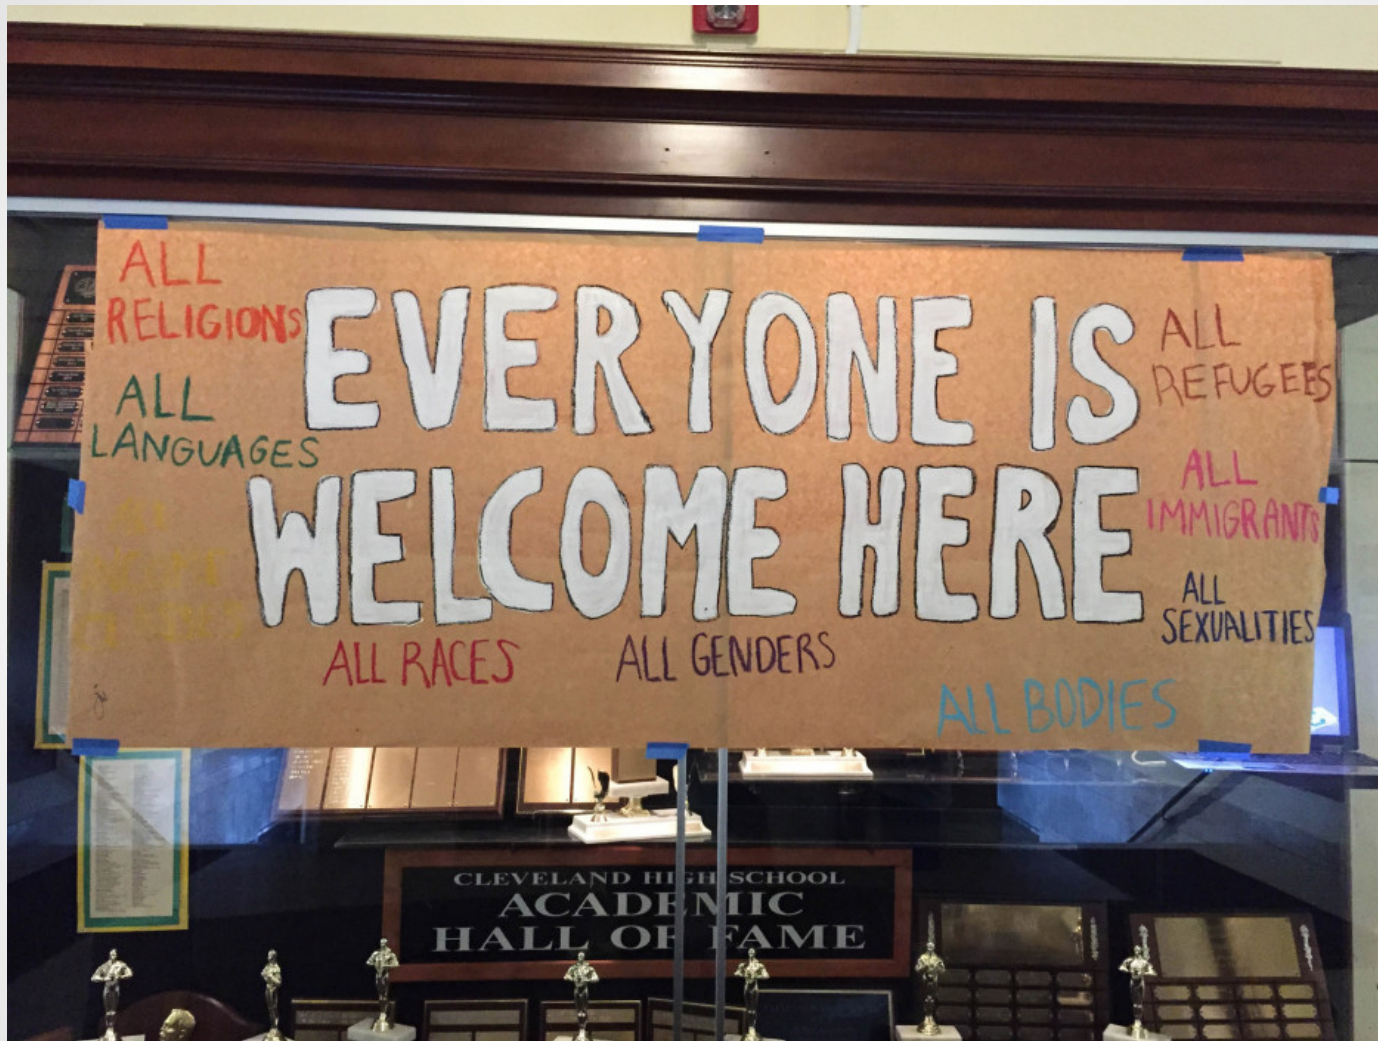 ALL
RELIGIONS
ALL
LANGUAGES
EVERYONE IS
WELCOME HERE
ALL
REFUGEES
ALL
IMMIGRANTS
ALL
SEXUALITIES
ALL RACES
ALL GENDERS
ALL BODIES
CLEVELAND HIGH SCHOOL
ACADEMIC
HALL OF FAME